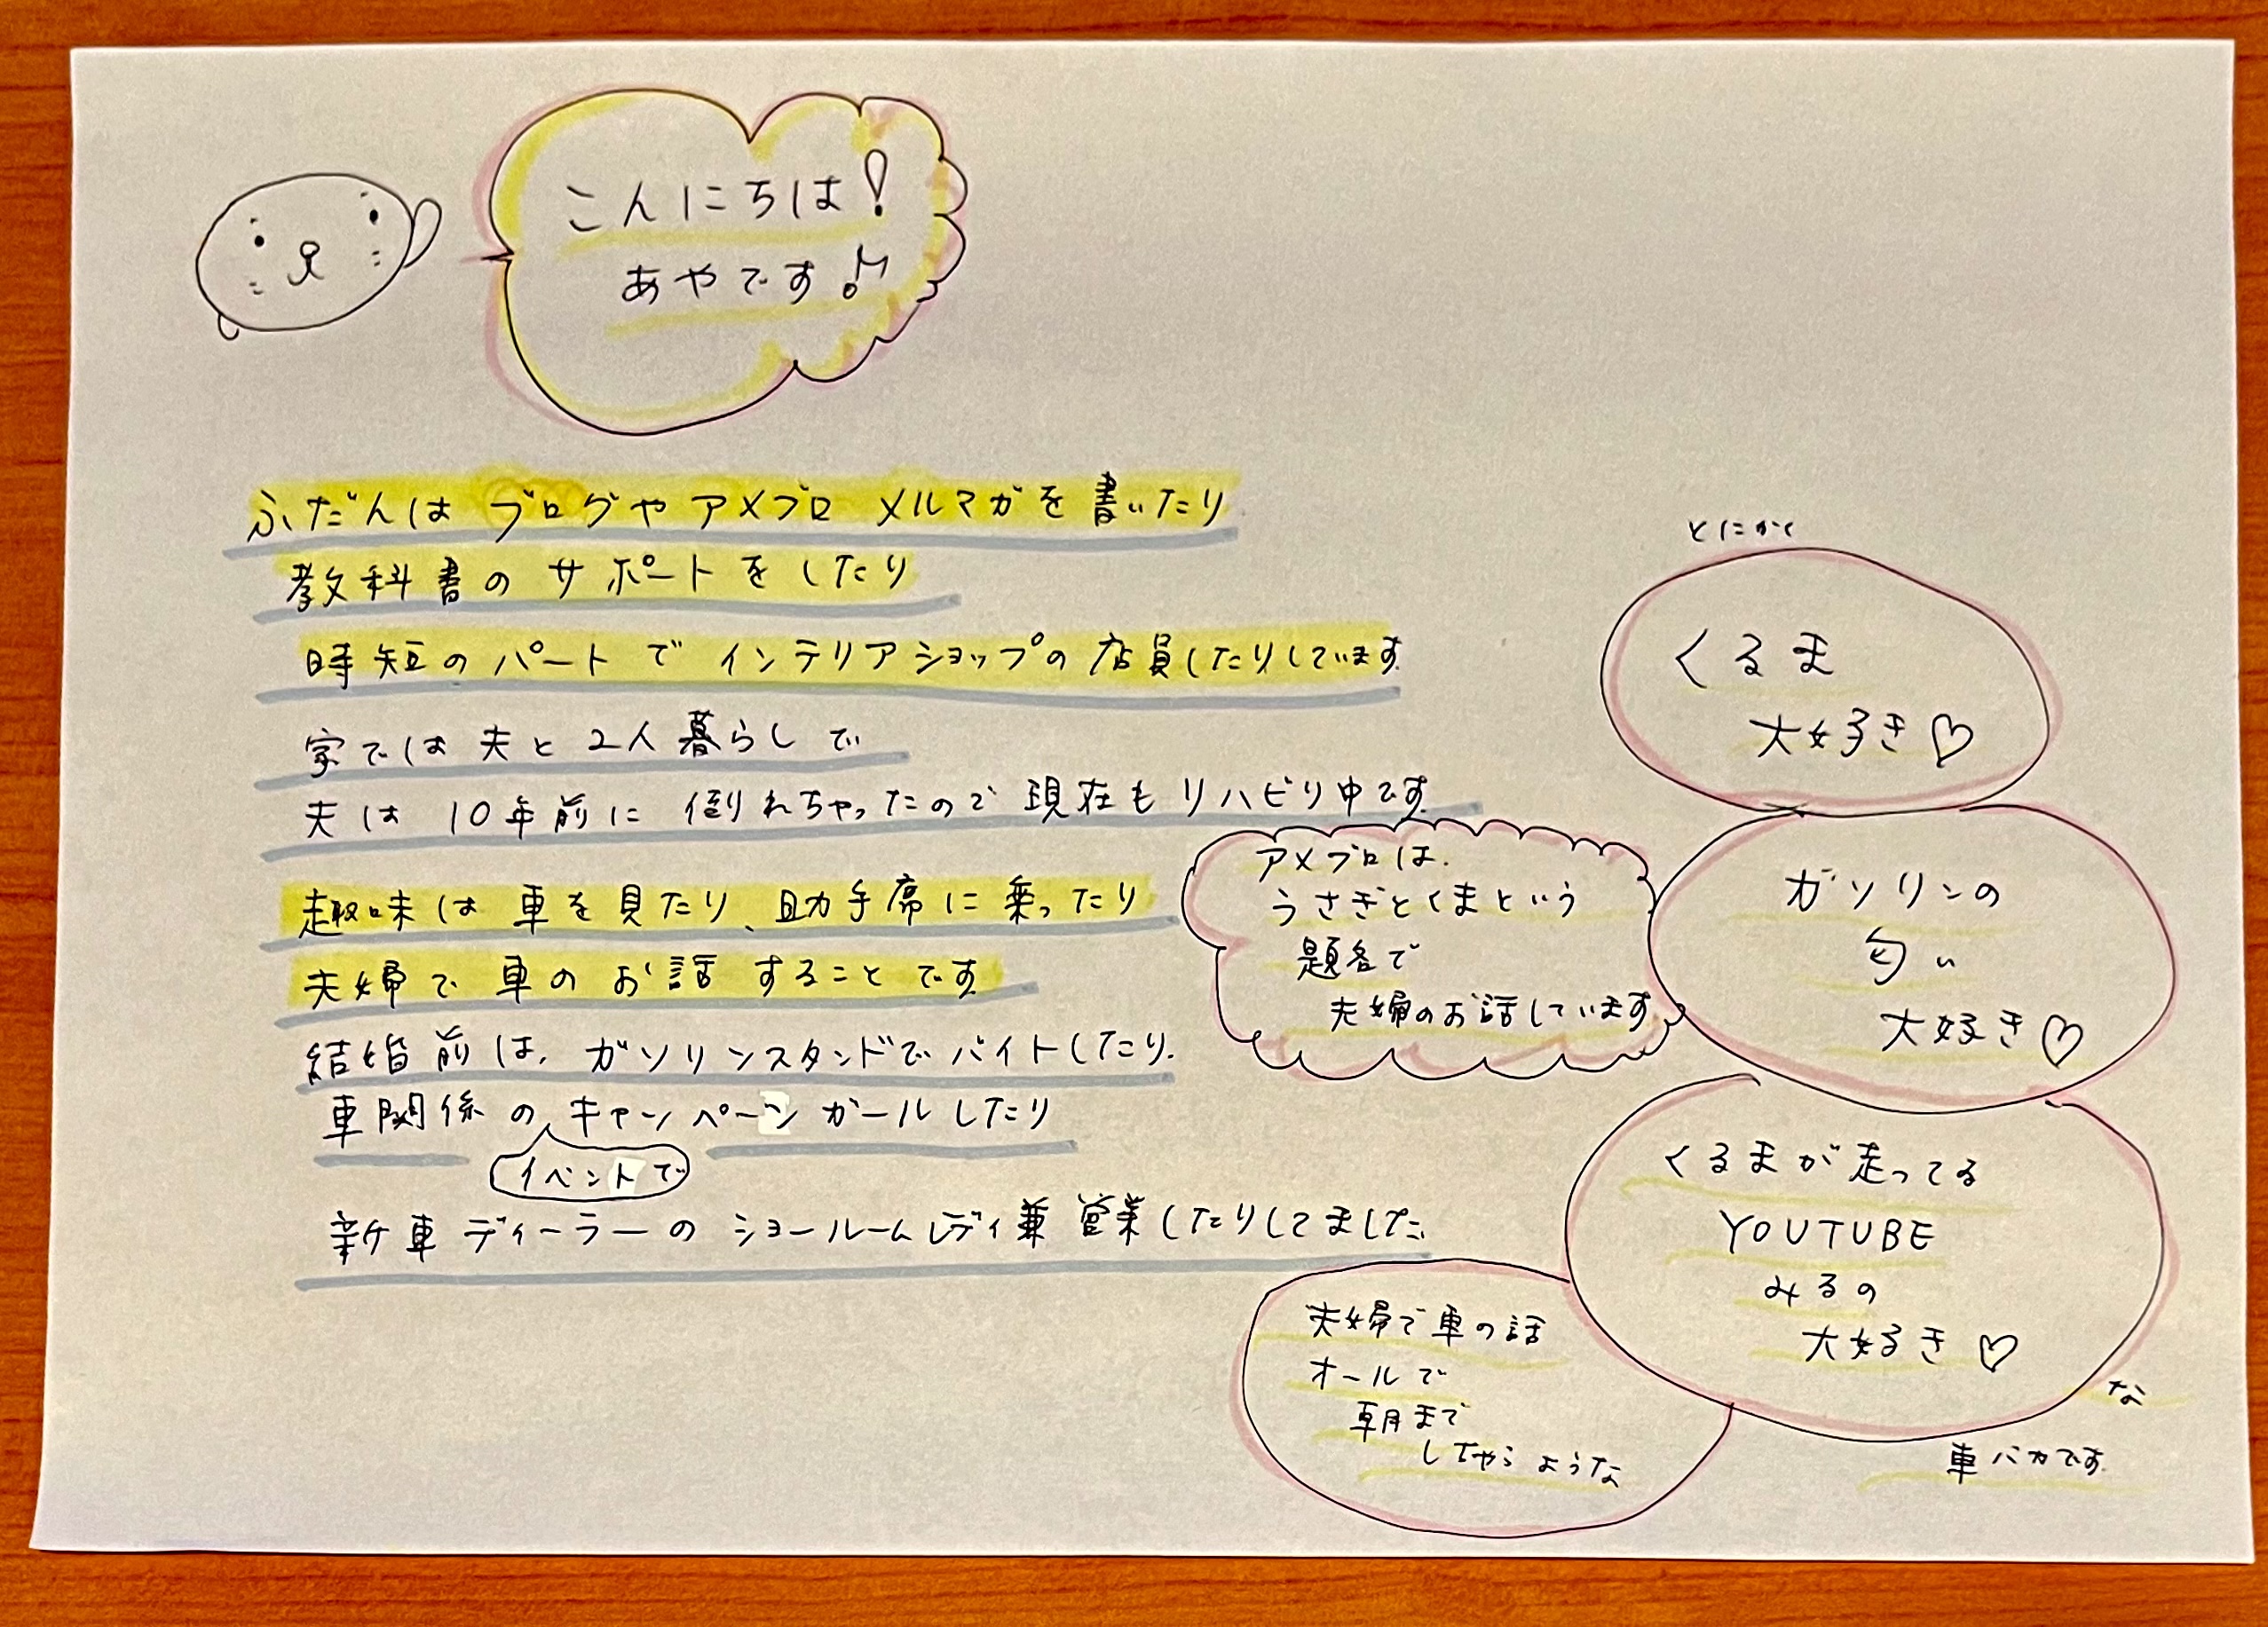 こんにちは!
あやです♫
ふだんは ブログや アメブロ メルマガを 書いたり
教科書の サポートを したり
時短の パートで インテリアショップの 店員したりしています
家では 夫と 2人 暮らしで
夫は 10年前に 倒れちゃったので 現在も リハビリ中です
趣味は 車を 見たり、助手席に 乗ったり
夫婦で 車の お話 することです
結婚前は、ガソリンスタンドで バイトしたり
車関係の キャンペーンガールしたり
イベントで
新車ディーラーの ショールームレディ兼 営業したりしてました
アメブロは、
うさぎとくまという
題名で
夫婦のお話しています
とにかく
くるま
大好き♡
ガソリンの
匂い
大好き♡
くるまが走ってる
YOUTUBE
みるの
大好き♡
夫婦で車の話
オールで
朝まで
しちゃうような
な
車バカです